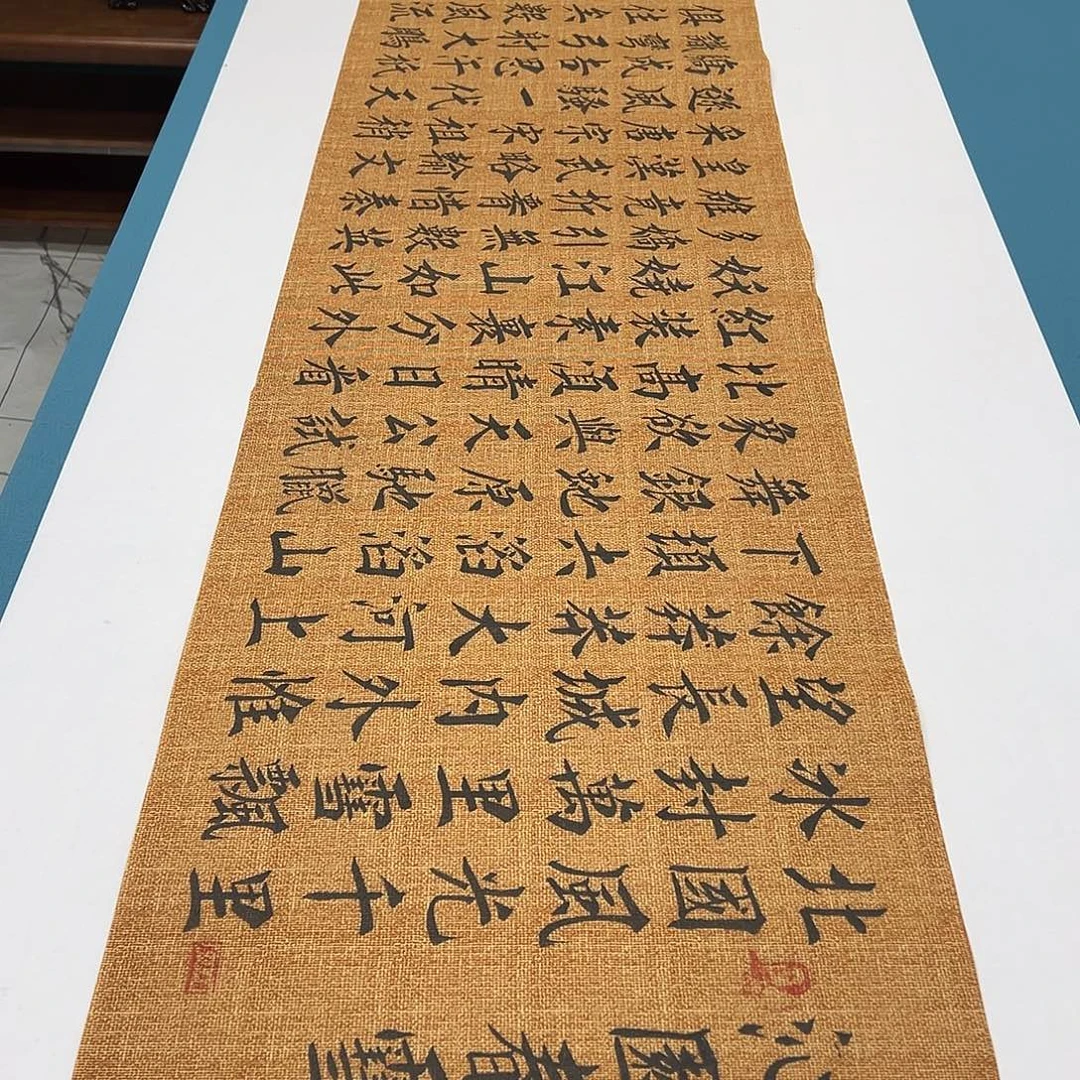 沁園春雪
北國風光千里
冰封萬里雪飄
望長城内外惟
餘莽莽大河上
下頓失滔滔山
舞銀蛇原馳臘
象欲與天公試
比高須晴日看
紅裝素裹分外
妖嬈江山如此
多嬌引無數英
雄竞折腰惜秦
皇漢武略輸文
采唐宗宋祖稍
遜風騷一代天
驕成吉思汗祇
識彎弓射大鵰
俱往矣數風流